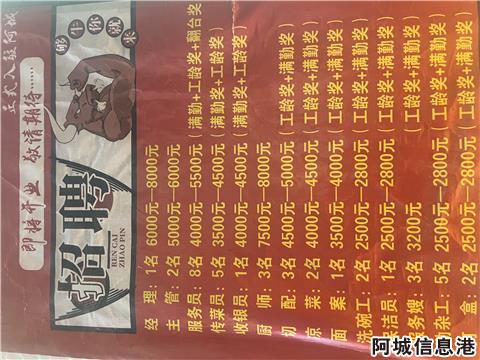 正式入驻阿城
即将开业 敬请期待......
够牛你就来
招聘
REN CAI
ZHAO PIN
经 理：1名 6000元—8000元
主 管：2名 5000元—6000元
服务员：8名 4000元—5500元（满勤+工龄奖+翻台奖
传菜员：5名 3500元—4500元（工龄奖+满勤奖
收银员：1名 4000元—4500元（满勤奖+工龄奖
厨 师：3名 7500元—8000元
切 配：3名 4500元—5000元（工龄奖+满勤奖
凉 菜：2名 4000元—4500元（工龄奖+满勤奖
面 案：1名 3500元—4000元（工龄奖+满勤奖
洗碗工：2名 2500元—2800元（工龄奖+满勤奖
保洁员：1名 2500元—2800元（工龄奖+满勤奖
服务嫂：3名 3200元（工龄奖+满勤奖
杂工：5名 2500元—2800元（工龄奖+满勤奖
盒：2名 2500元—2800元（工龄奖+满勤奖
阿城信息港